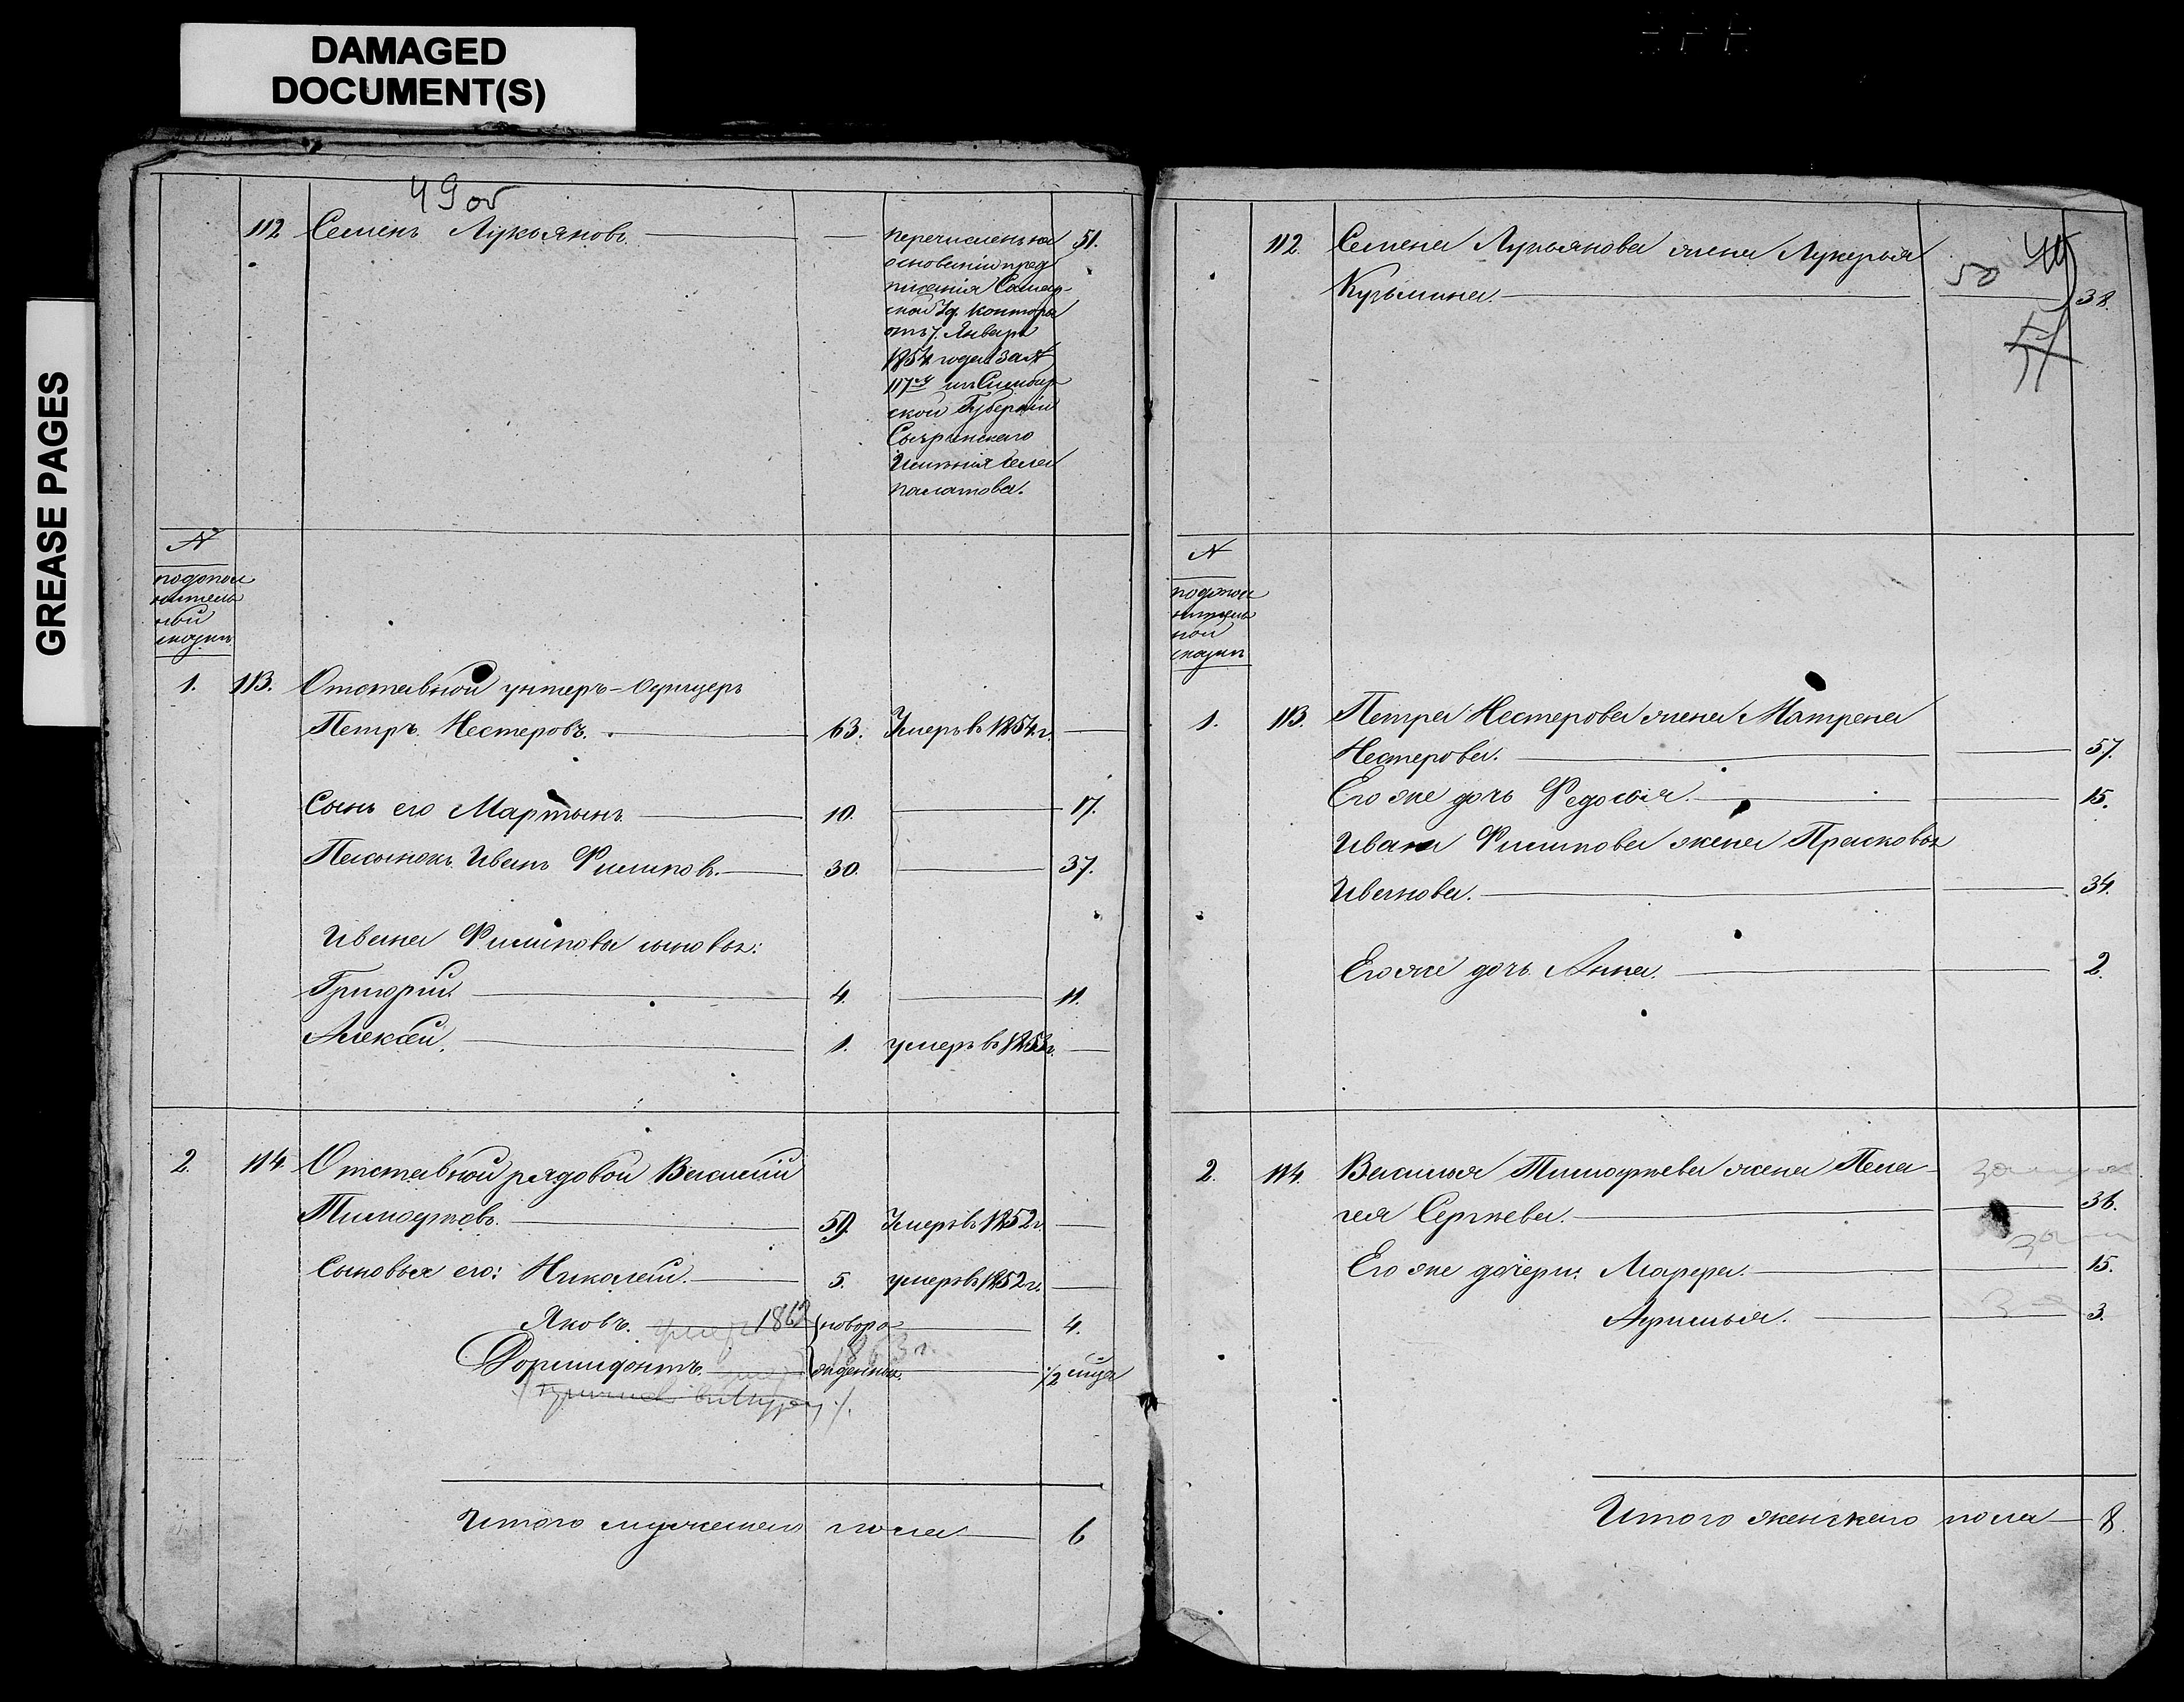 DAMAGED
DOCUMENT(S)
GREASE PAGES
49 об
112 Семенъ Лукьяновъ. — перечисленъ на 51.
основаніи пред
писанія Самар-
ской Уд. Конторы
отъ 7. Января
1854 года за №
117му изъ Симбир-
ской Губерніи
Сызранскаго
Имѣнія села
№
подопол
нитель
ной
сказки
1. 113. Отставной унтеръ-Офицеръ
Петръ Нестеровъ. 63. Умеръ въ 1854 г. —
Сынъ его Мартынъ 10. — 17.
Пасынокъ Иванъ Филиповъ. 30. — 37.
Ивана Филипова сыновья:
Григорій. 4. — 11.
Алексей. 1. умеръ въ г. —
2. 114. Отставной рядовой Василий
Тимофеевъ. 59. Умеръ въ 1852 г. —
Сыновья его: Николай. 5. умеръ въ 1852 г. —
Яковъ. умер 1862 новоро- 4.
Дормидонтъ. жденные. 1863 г. 1/2 мца
Итого мужескаго пола 6
112. Семена Лукьянова жена Лукерья
Кузьмина. 50 38.
№
подопол
нитель
ной
сказки
1. 113. Петра Нестерова жена Матрена
Нестерова. 57.
Его же дочь Федосья. 15.
Ивана Филипова жена Прасковья
Иванова. 34.
Его же дочь Анна. 2.
2. 114. Василья Тимофеева жена Пела-
гея Сергѣева. 36.
Его же дочери: Марфа. 15.
Лукилья. 3.
Итого женскаго пола 8.